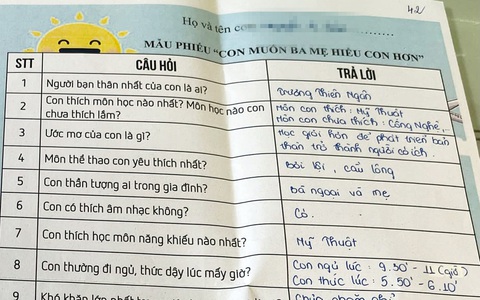 4.2
Họ và tên con
MẪU PHIẾU "CON MUỐN BA MẸ HIỂU CON HƠN"
STT CÂU HỎI TRẢ LỜI
1 Người bạn thân nhất của con là ai? Trương Thiên Ngân
2 Con thích môn học nào nhất? Môn học nào con chưa thích lắm? Môn con thích : Mỹ Thuật
Môn con chưa thích : Công Nghệ,
3 Ước mơ của con là gì? Học giỏi hơn để phát triển bản
thân trở thành người có ích.
4 Môn thể thao con yêu thích nhất? Bơi lội, cầu lông
5 Con thần tượng ai trong gia đình? Bà ngoại và mẹ
6 Con có thích âm nhạc không? Có.
7 Con thích học môn năng khiếu nào nhất? Mỹ Thuật
8 Con thường đi ngủ, thức dậy lúc mấy giờ? Con ngủ lúc : 9.50' - 11 (giờ)
Con thức lúc : 5.50' - 6.10'
9 Khó khăn lớn nhất